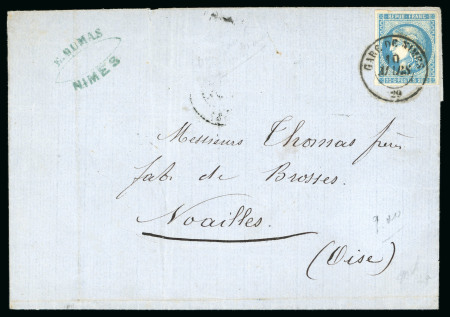 E. DUMAS
NIMES
REPUB. FRANC.
GARE DE NIMES
Messieurs Thomas frères
fab. de Brosses.
Noailles.
(Oise)